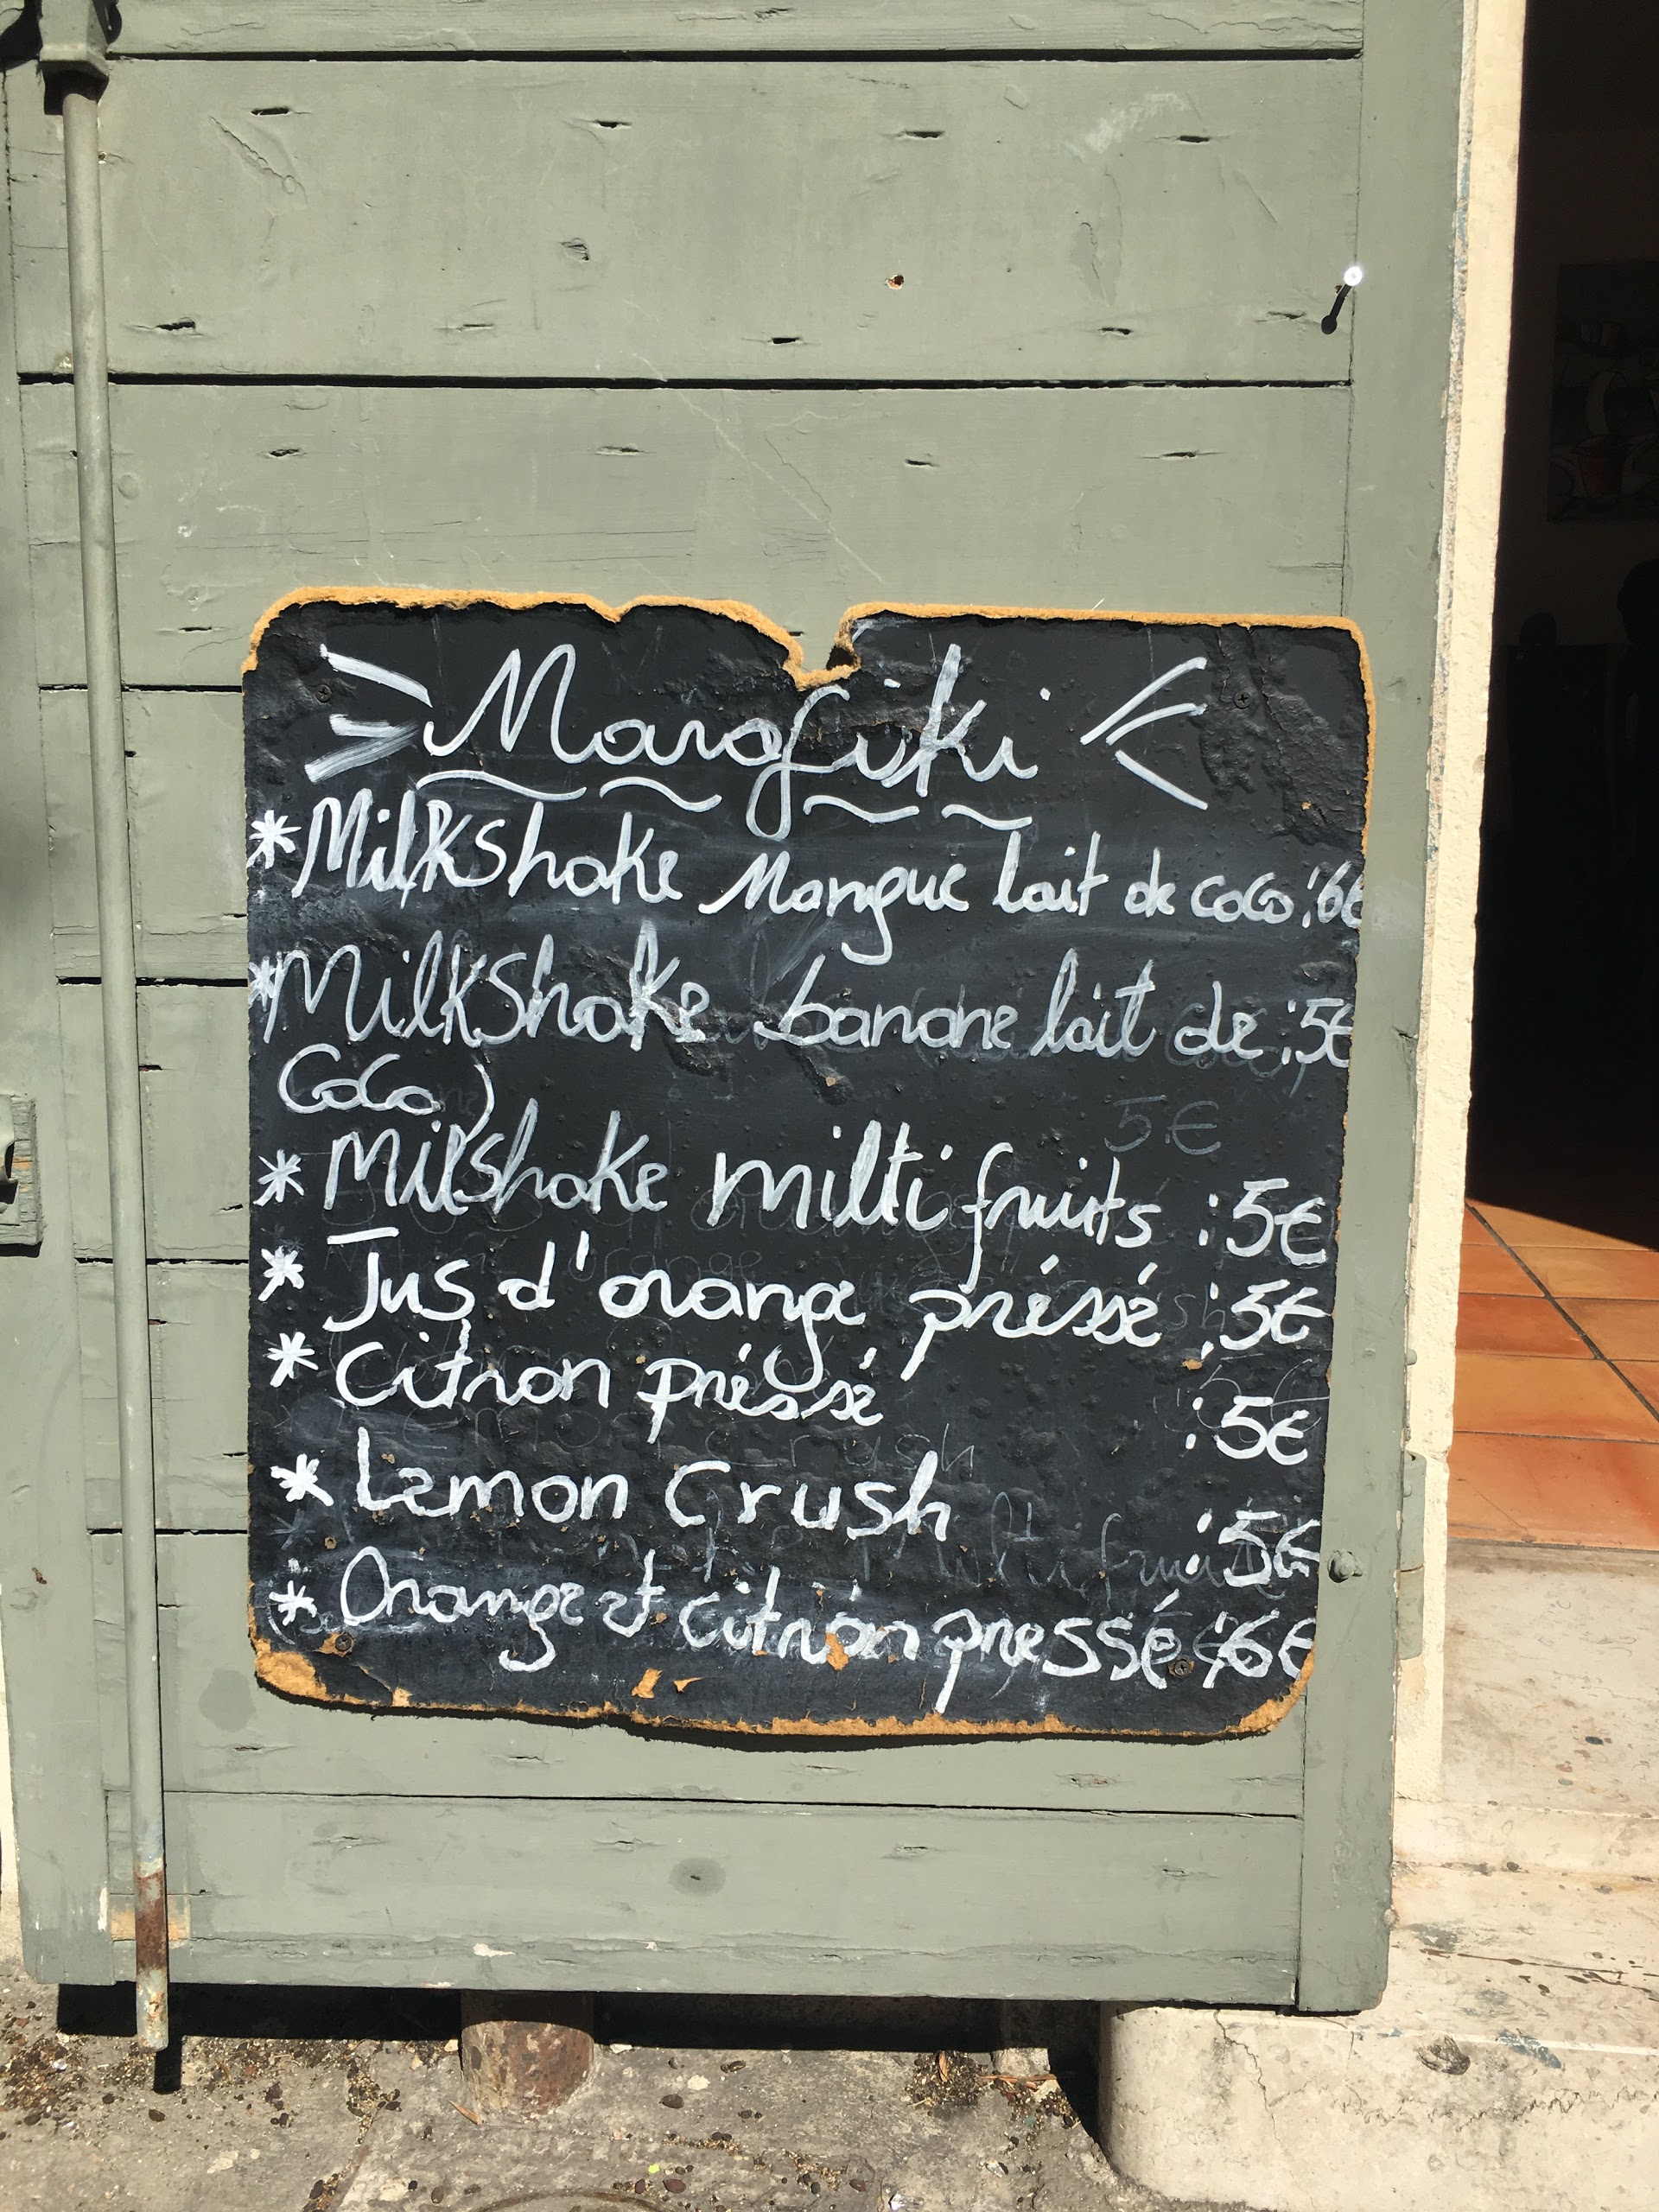 * Milkshake Mangue lait de coco : 6€
* Milkshake banane lait de : 5€
Coco)
* Milshake milti fruits : 5€
* Jus d'orange préssé : 5€
* Citron préssé : 5€
* Lemon Crush : 5€
* Orange et citron pressé : 6€